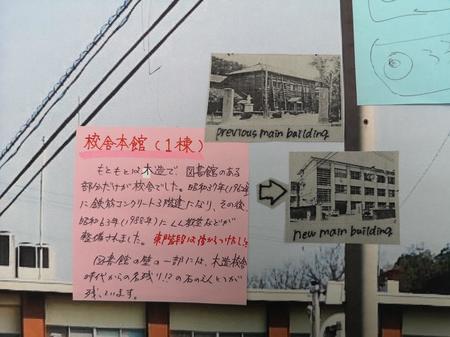 校舎本館（1棟）
もともとは木造で、図書館のある
部分だけが校舎でした。昭和39年(1964)
に鉄筋コンクリート3階建になり、その後、
昭和63年(1988年)にLL教室などが
整備されました。東階段は後からつけたしう
図書館の壁の一部には、木造校舎
時代からの名残り!?の石のえんとつが
残っています。
previous main building
new main building